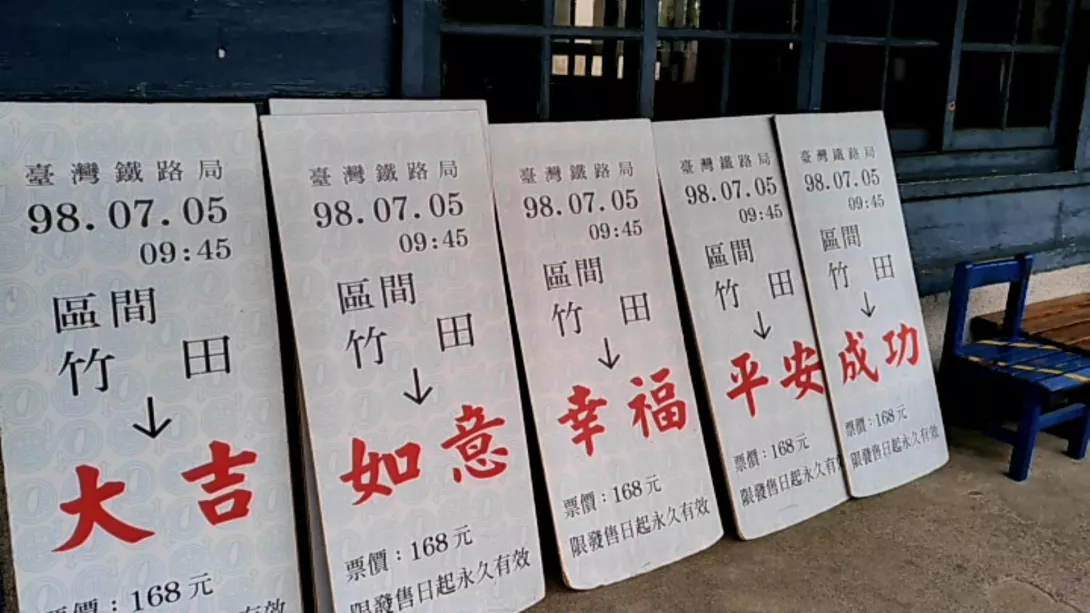 臺灣鐵路局
98.07.05
09:45
區間
竹田
↓
大吉
票價：168元
有效
臺灣鐵路局
98.07.05
09:45
區間
竹田
↓
如意
票價：168元
限發售日起永久有效
臺灣鐵路局
98.07.05
09:45
區間
竹田
↓
幸福
票價：168元
限發售日起永久有效
臺灣鐵路局
98.07.05
09:45
區間
竹田
↓
平安
票價：168元
限發售日起永久有效
臺灣鐵路局
98.07.05
09:45
區間
竹田
↓
成功
票價：168元
限發售日起永久有效